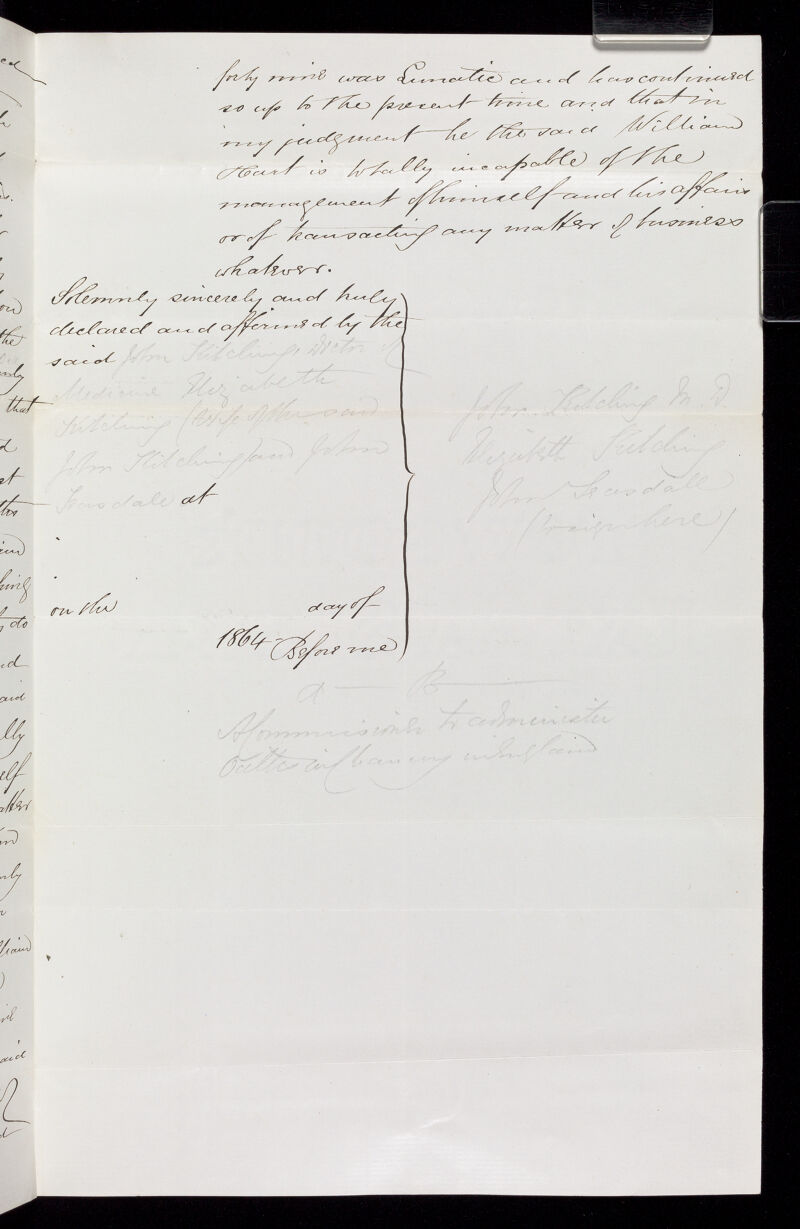 forty nine was Lunatic and has continued
so up to the present time and that in
my judgment he the said William
Hart is totally incapable of the
management of himself and his affairs
or of transacting any matter of business
whatever.
Solemnly sincerely and truly
declared and affirmed by the
said John Kitching, Doctor of
Medicine Elizabeth
Kitching (Wife of the said
John Kitching) and John
Teasdale at
on the day of
1864 Before me
John Kitching M.D.
Elizabeth Kitching
John Teasdale
(to sign here)
A B
A Commissioner to administer
Oaths in Chancery in England